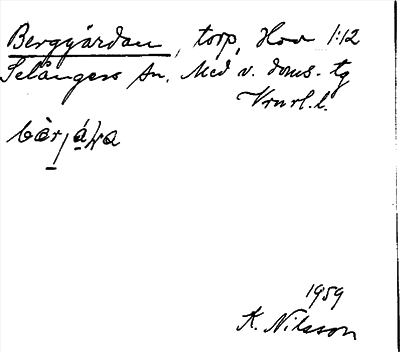 Berggårdan, torp, Hov 1:12
Selångers sn. Med v. doms. tg
Vrnrl. l.
1959
K. Nilsson